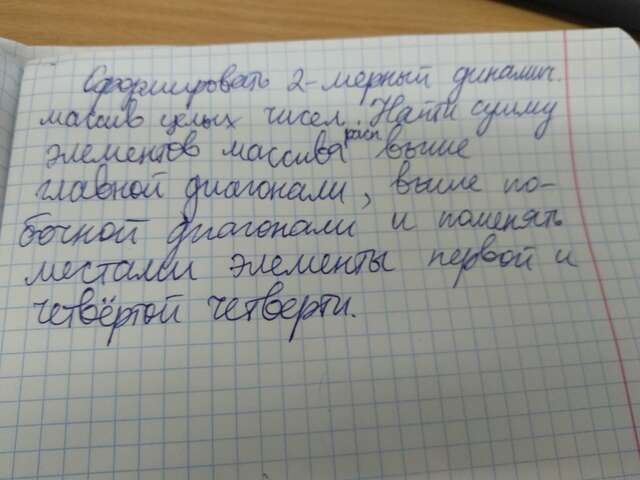 Сформировать 2-мерный динамич.
массив целых чисел. Найти сумму
элементов массива расп выше
главной диагонали, выше по-
бочной диагонали и поменять
местами элементы первой и
четвёртой четверти.